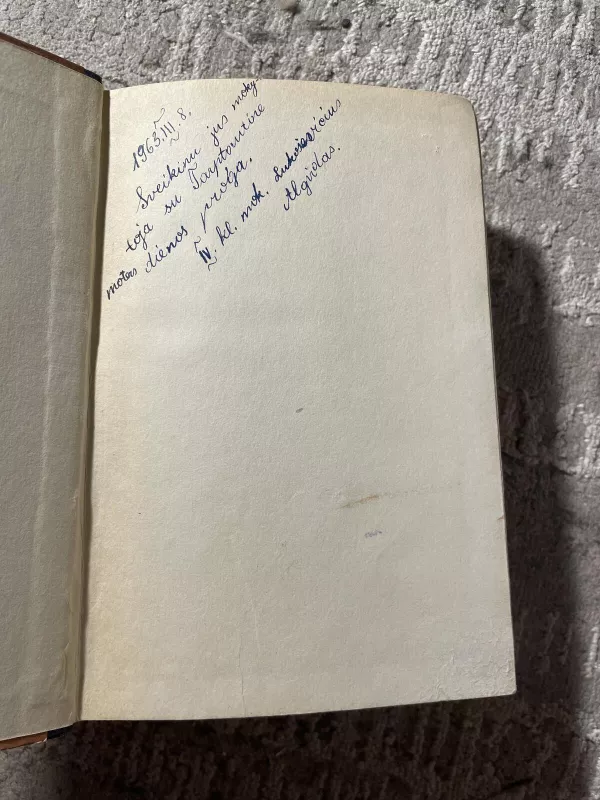 1963.III.8.
Sveikinu jus moky-
toja su Tarptautine
moters dienos proga.
IV. kl. mok. Lukoševičius
Algirdas.